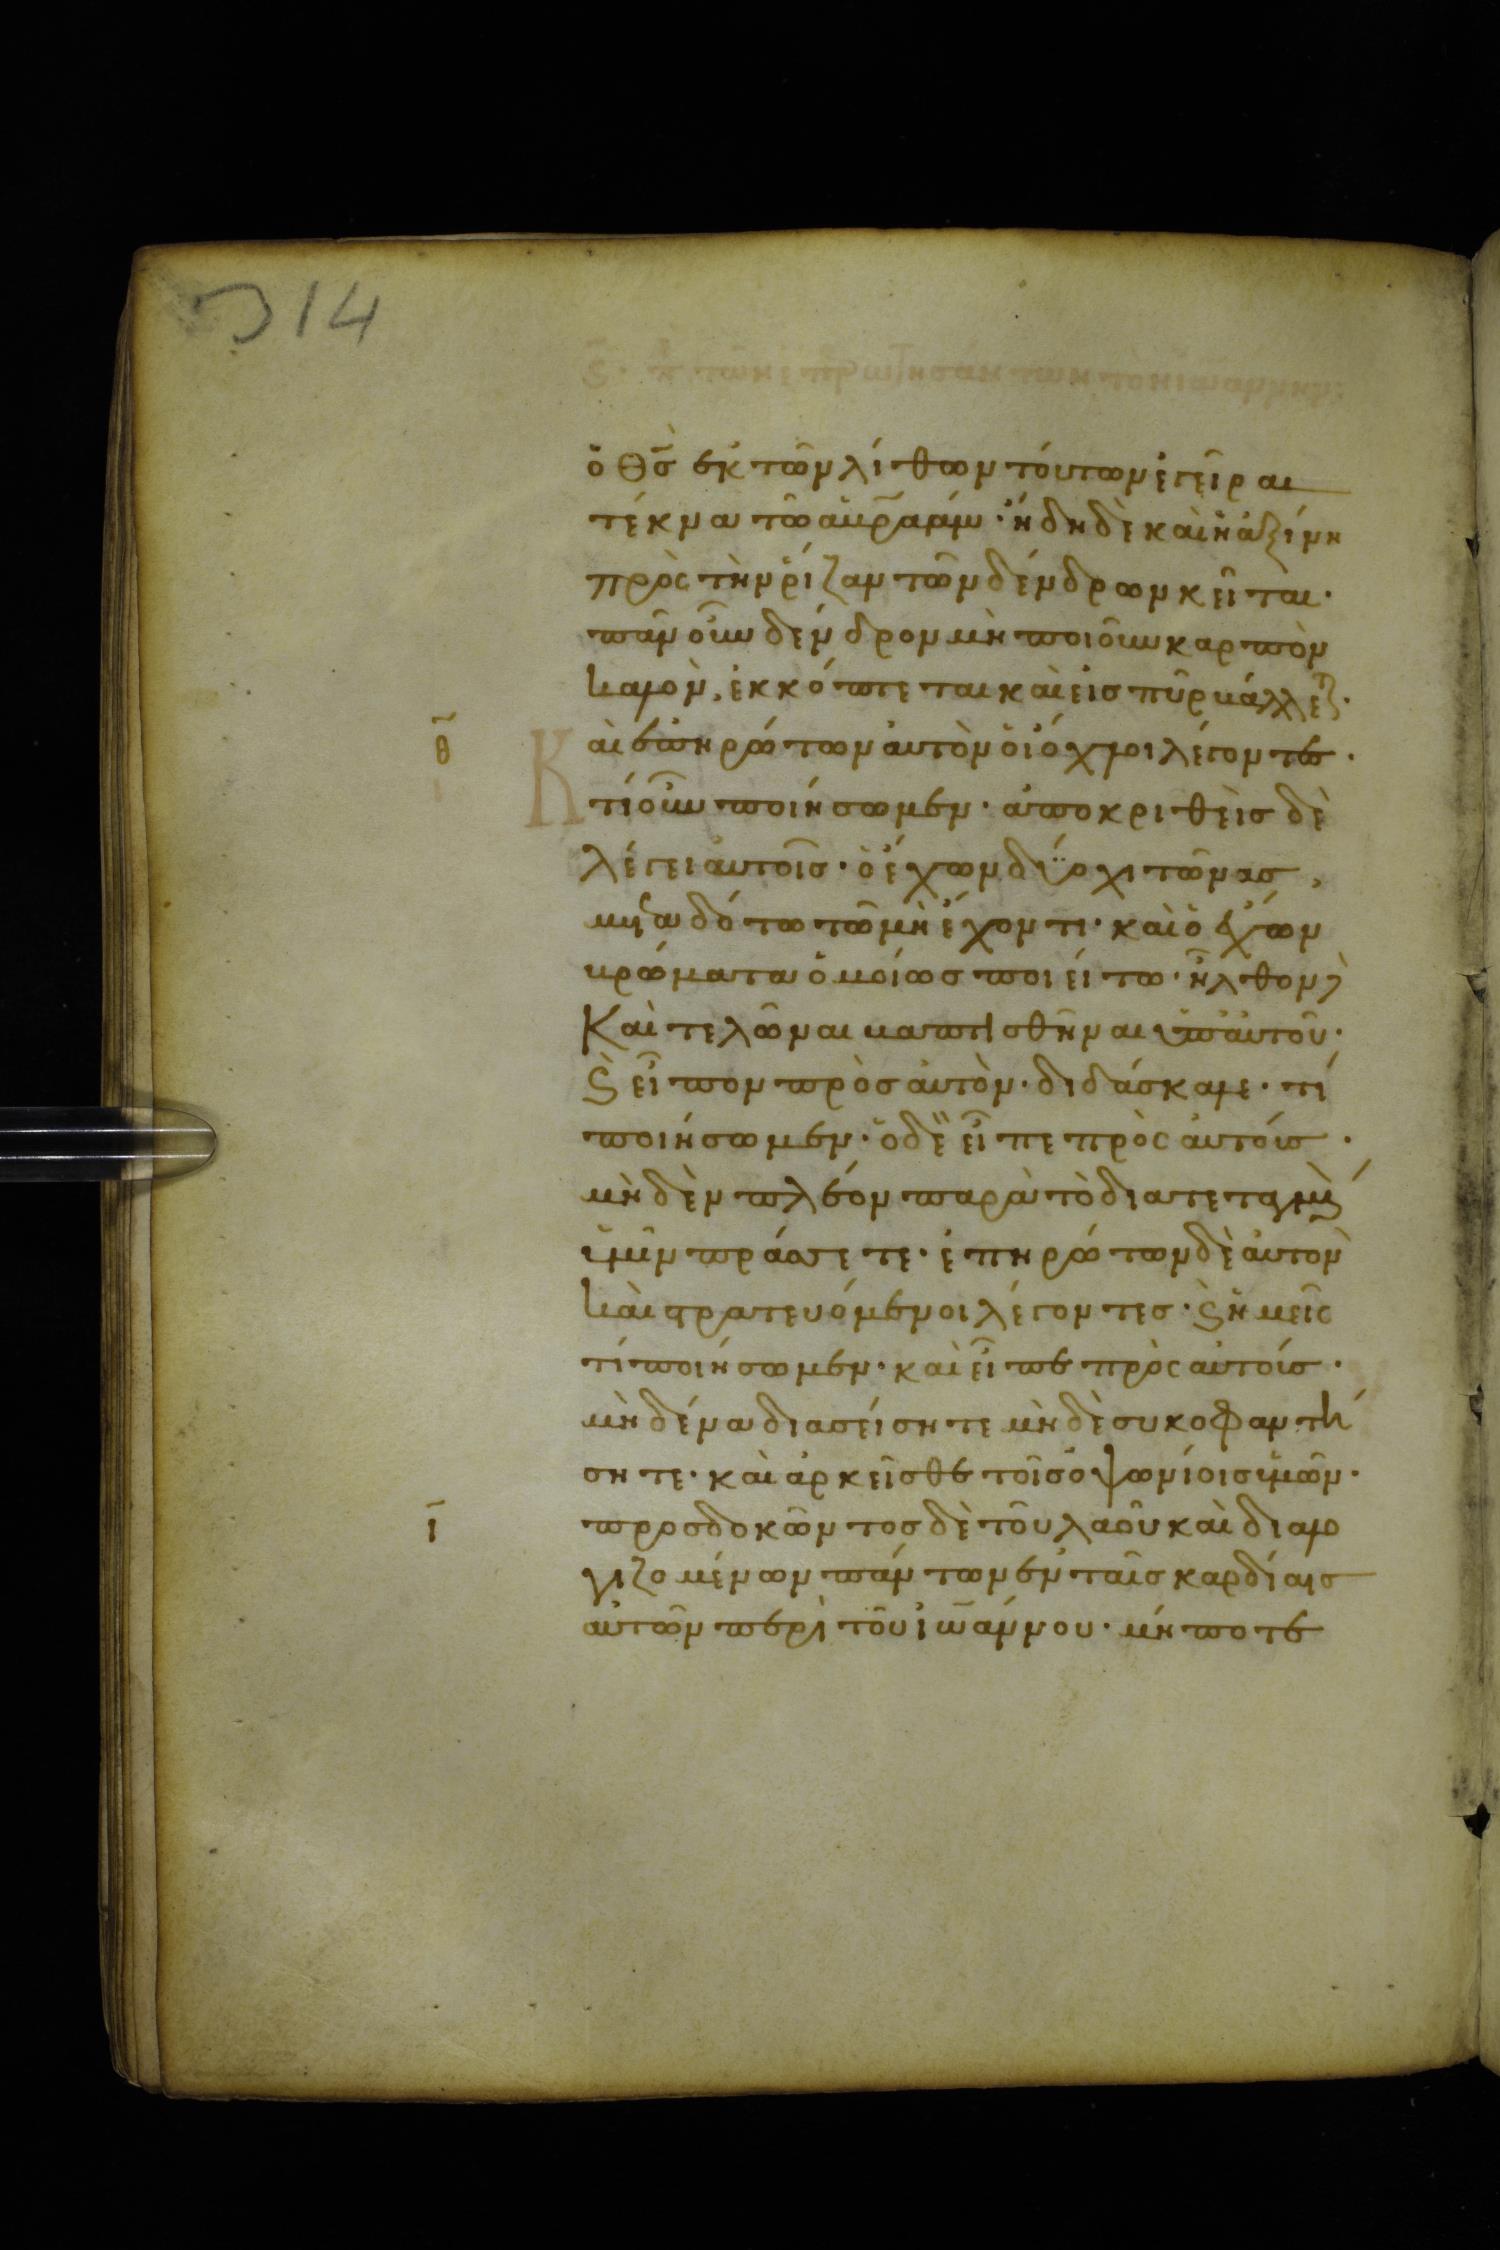 314
ὁ θ̅σ̅ ἐκ τῶν λίθων τούτων ἐγεῖραι
τέκνα τῶ ἀβρ̅αάμ · ἤδη δὲ καὶ ἡ ἀξίνη
πρὸς τὴν ῥίζαν τῶν δένδρων κεῖται ·
πᾶν οὖν δένδρον μὴ ποιοῦν καρπὸν
καλὸν, ἐκκόπτεται καὶ εἰσ πῦρ βάλλεϛ̑ ·
θ̅
Καὶ ἐπηρώτων αὐτὸν ὁι ὄχλοι λέγοντες ·
τί οὖν ποιήσωμεν · ἀποκριθεὶσ δὲ
λέγει αὐτοῖσ · ὁ ἔχων δύο χιτῶνασ ,
μεταδότω τῶ μὴ ἔχοντι · καὶ ὁ ἔχων
βρώματα ὁμοίωσ ποιείτω · ἦλθον δὲ
καὶ τελῶναι βαπτισθῆναι ὑπ᾽ αὐτοῦ ·
ϛ̀ εἶπον πρὸσ αὐτὸν · διδάσκαλε · τί
ποιήσωμεν · ὁ δὲ εἶπε πρὸς αὐτούσ ·
μηδὲν πλέον παρὰ τὸ διατεταγμέν
ὑμῖν πράσσετε · ἐπηρώτων δὲ αὐτὸν
καὶ στρατευόμενοι λέγοντεσ · ϛ̀ ἡμεῖς
τί ποιήσωμεν · καὶ εἶπε πρὸς αὐτούσ ·
μηδένα διασείσητε μηδὲ συκοφαντή
σητε · καὶ ἀρκεῖσθε τοῖσ ὀψωνίοισ ὑμῶν ·
ι̅
προσδοκῶντοσ δὲ τοῦ λαοῦ καὶ διαλο
γιζομένων πάντων ἐν ταῖσ καρδίαισ
αὐτῶν περὶ τοῦ ἰω̅άννου · μήποτε